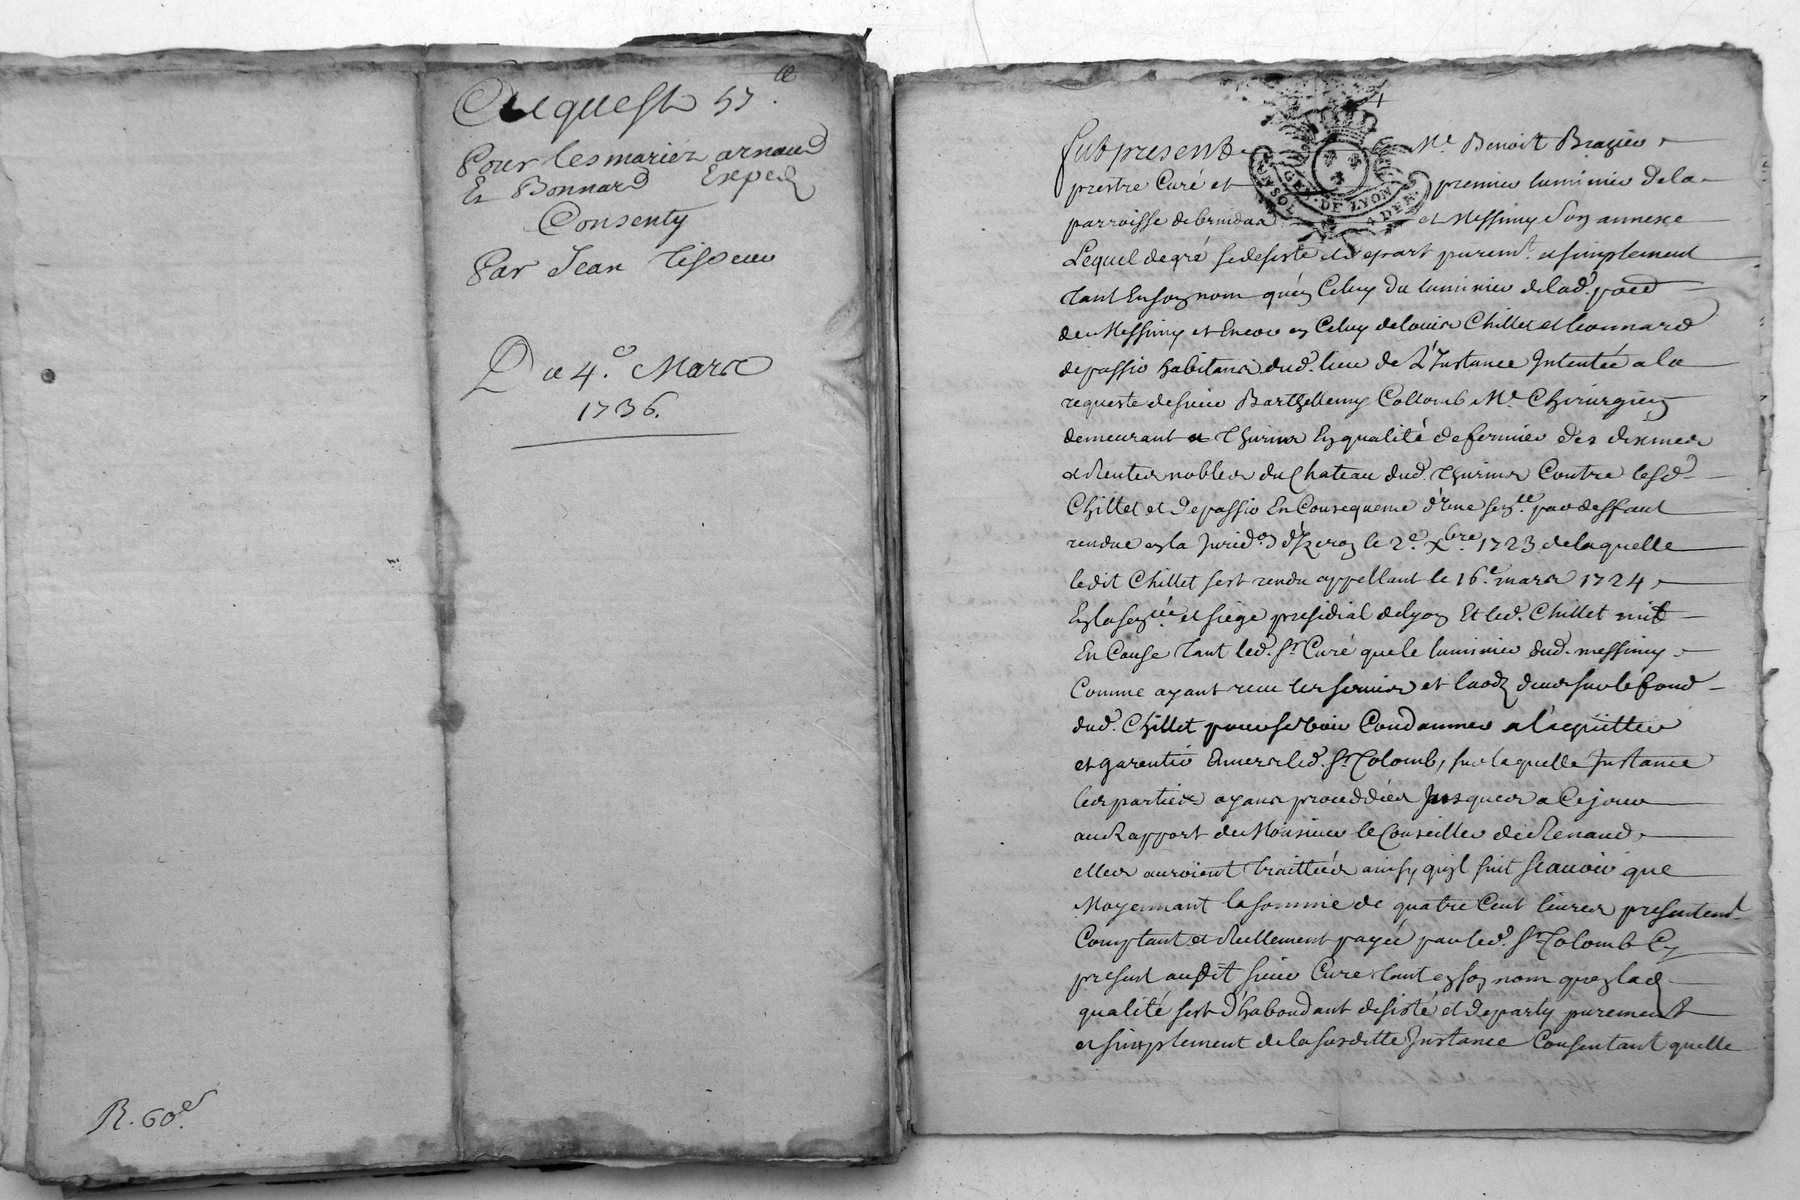 Acquest 57.e
Pour les mariez arnaud
Et Bonnard Exped
Consenty
Par Jean Tisseur
Du 4.e Mars
1736.
R. 60.s
4
fut present M.e Benoit Brazier
prestre Curé et premier luminier de la
parroisse de brindas et Messimy son annexe
Lequel de gré se desiste et depart purem.t et simplement
tant En son nom qu'en Celuy du luminier de lad.
de Messimy et Encore en Celuy de louis Chillet et leonnard
depassio habitans dud. lieu de L'Instance Intentée a la
requeste de sieur Barthellemy Collomb M.e Chirurgien
demeurant a Thurins En qualité de fermier des dixmes
et Rentes nobles du Chateau dud. Thurins Contre lesd.
Chillet et Depassio En Consequence d'une sen.ce par deffaut
rendue en la Jurid.on d'Izeron le 2.e xbre 1723 de laquelle
ledit Chillet s'est rendu appellant le 16.e mars 1724
En la sen.ée et siege presidial de lyon Et led. Chillet mit
En Cause tant led. S.r Curé que le luminier dud. messimy
Comme ayant receu les servis et laodz deus sur le fond
dud. Chillet pour se voir Condamner a l'acquitter
et garentir Envers led. S.r Colomb, sur laquelle Instance
les parties ayans proceddées Jusques a Ce jour
au Rapport de Monsieur le Conseiller de Renaud
elles auroient traittées ainsy qu'il suit scavoir que
Moyennant la somme de quatre Cent livres presentem.t
Comptant et Reellement payée par led. S.r Colomb Cy
present audit sieur Curé tant en son nom qu'en lad.
qualité s'est d'habondant desisté et Departy purement
et simplement de la susditte Instance Consentant quelle
GEN. DE LYON